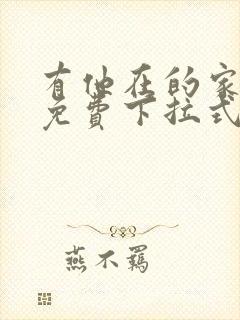 有他在的家
免费下拉式
燕不羁